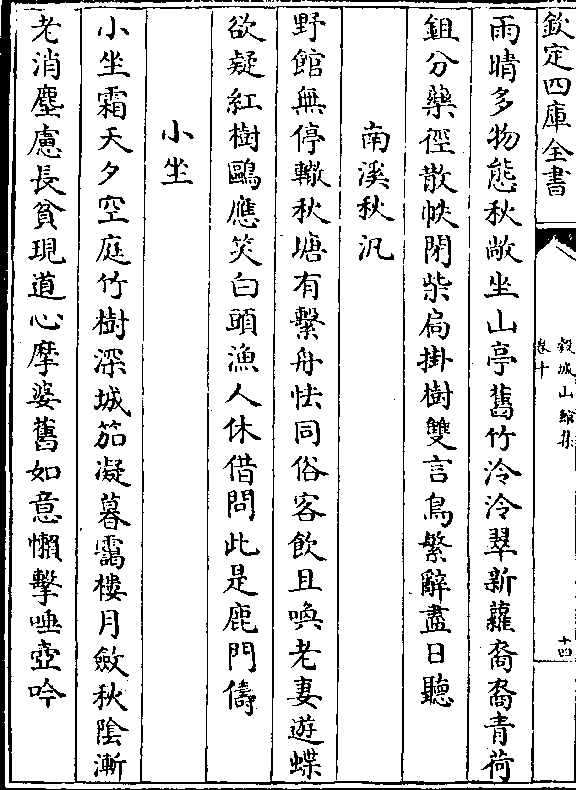 欽定四庫全書
穀城山館集
卷十
十四
雨晴多物態秋敞坐山亭舊竹泠泠翠新蘿裔裔青荷
鉏分藥徑散帙閉柴扄掛樹雙言鳥繁辭盡日聽
南溪秋汎
野館無停轍秋塘有繫舟怯同俗客飲且喚老妻遊蝶
欲疑紅樹鷗應笑白頭漁人休借問此是鹿門儔
小坐
小坐霜天夕空庭竹樹深城笳凝暮靄樓月斂秋陰漸
老消塵慮長貧現道心摩娑舊如意懶擊唾壺吟